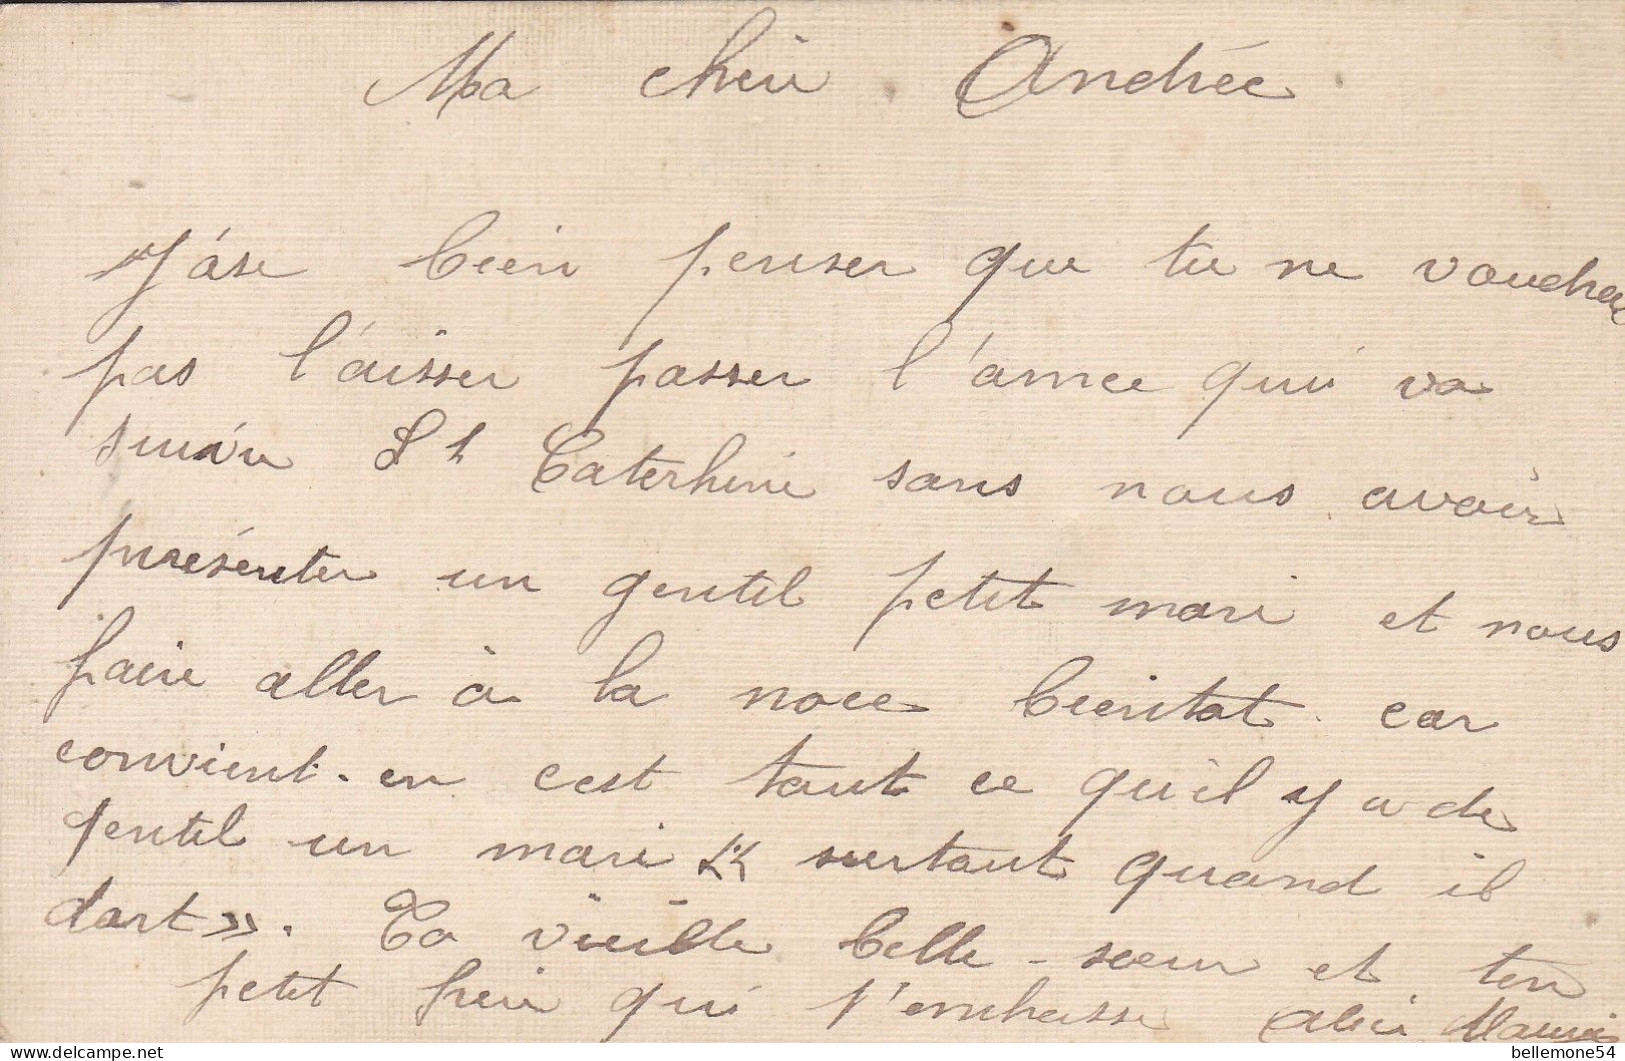 Ma chère Andrée
J'ose bien penser que tu ne voudras
pas l'aisser passer l'année qui va
suivre St Caterhine sans nous avoir
présenter un gentil petit mari et nous
faire aller à la noce bientot car
convient-en cest tout ce qu'il y a de
gentil un mari « surtout quand il
dort ». Ta vieille belle-sœur et ton
petit frère qui t'embrasse Alice Maurice
bellemone54